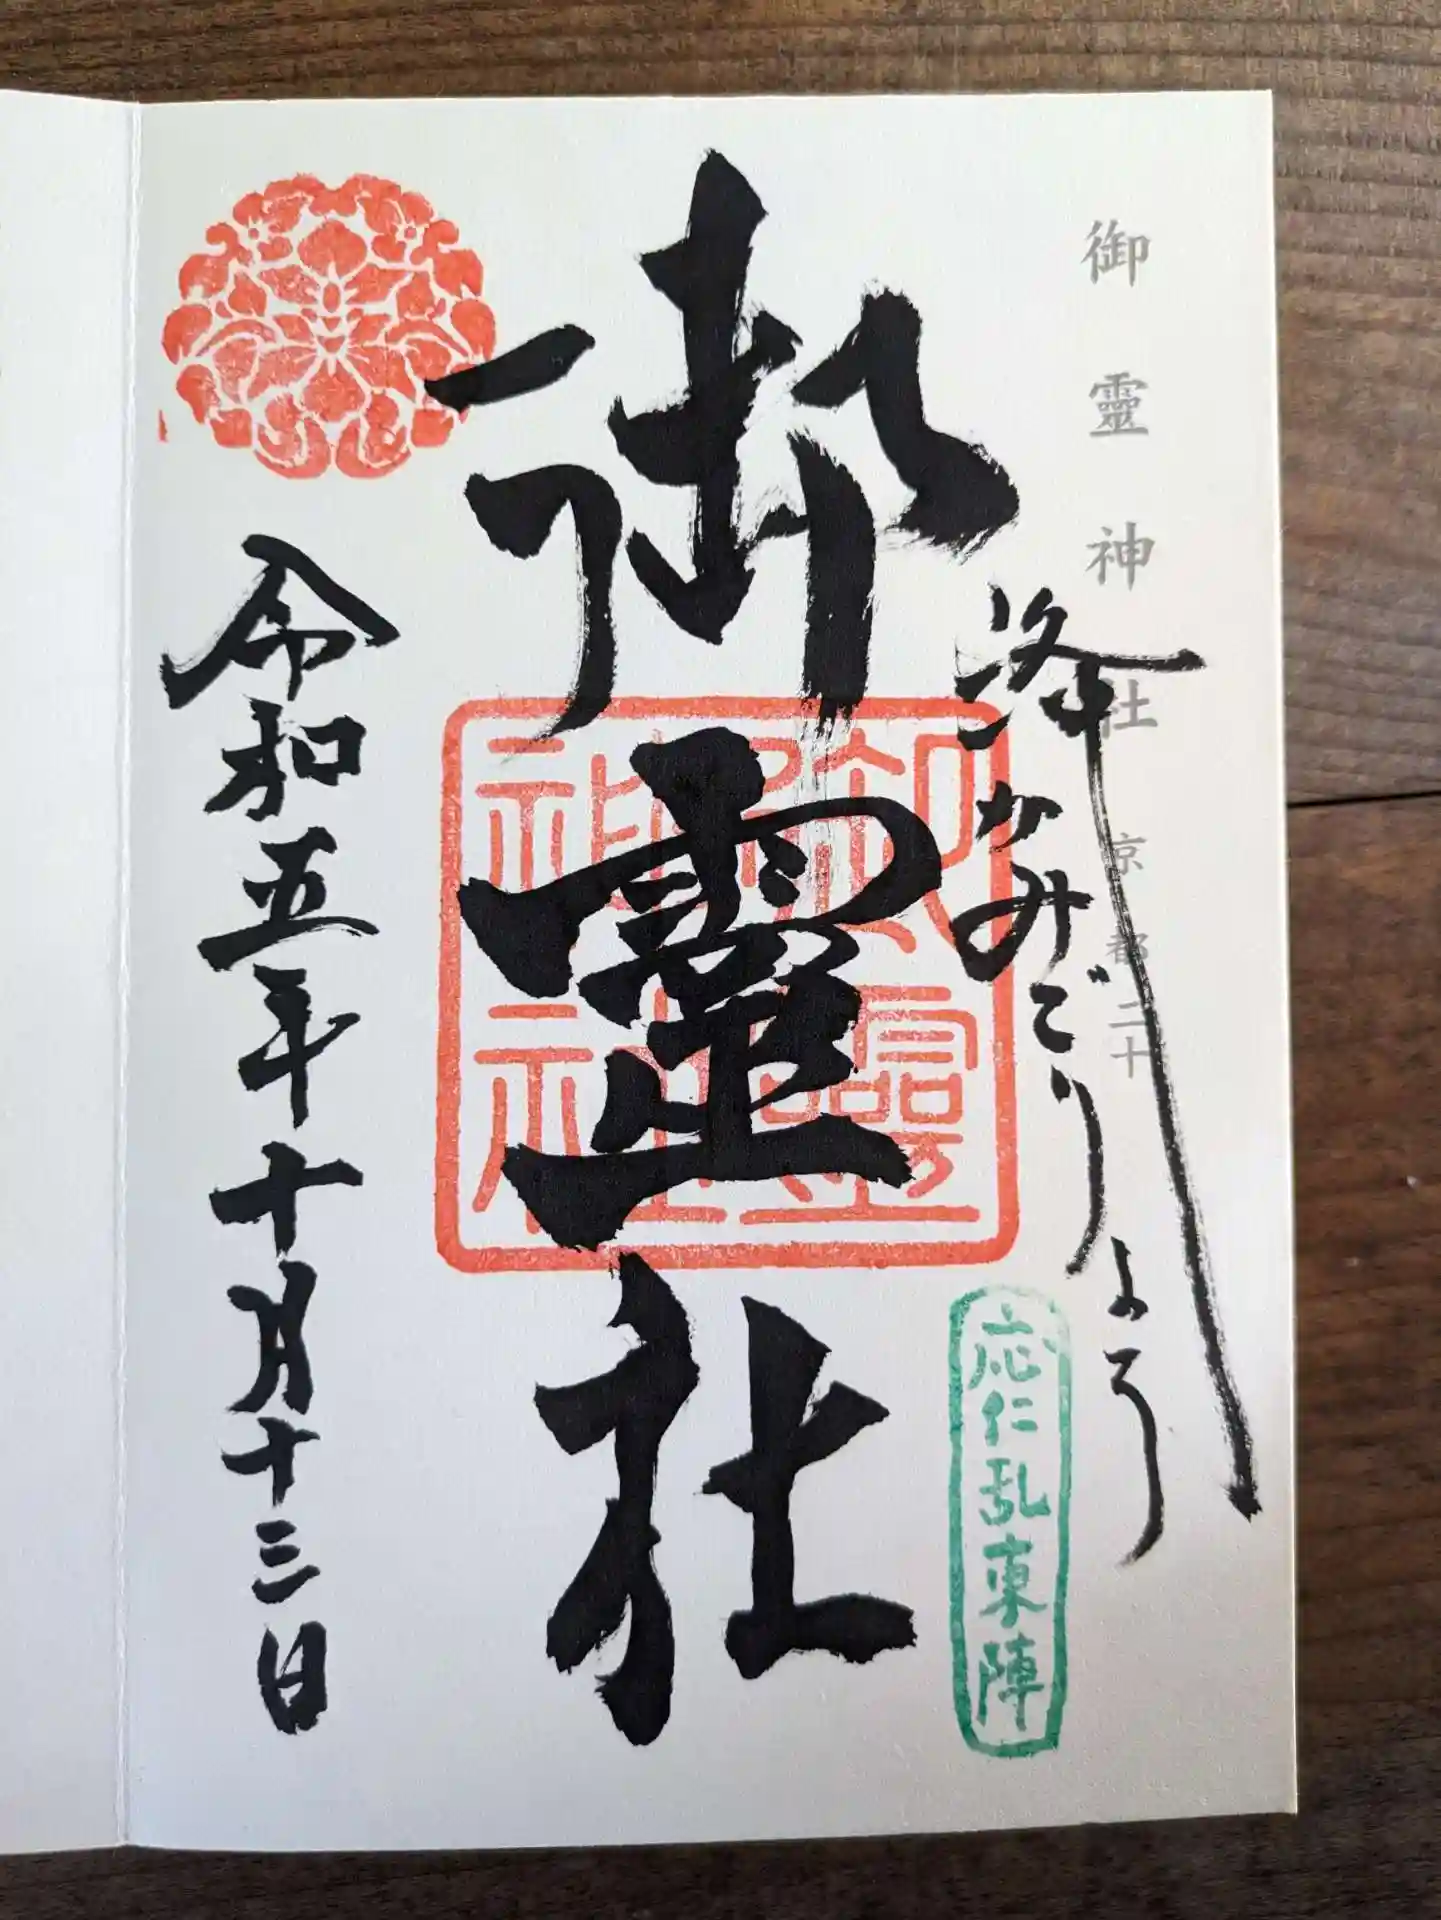 御靈神社 京都二十
洛かみごりょう
應仁乱東陣
御靈社
御靈神社
令和五年十月十三日